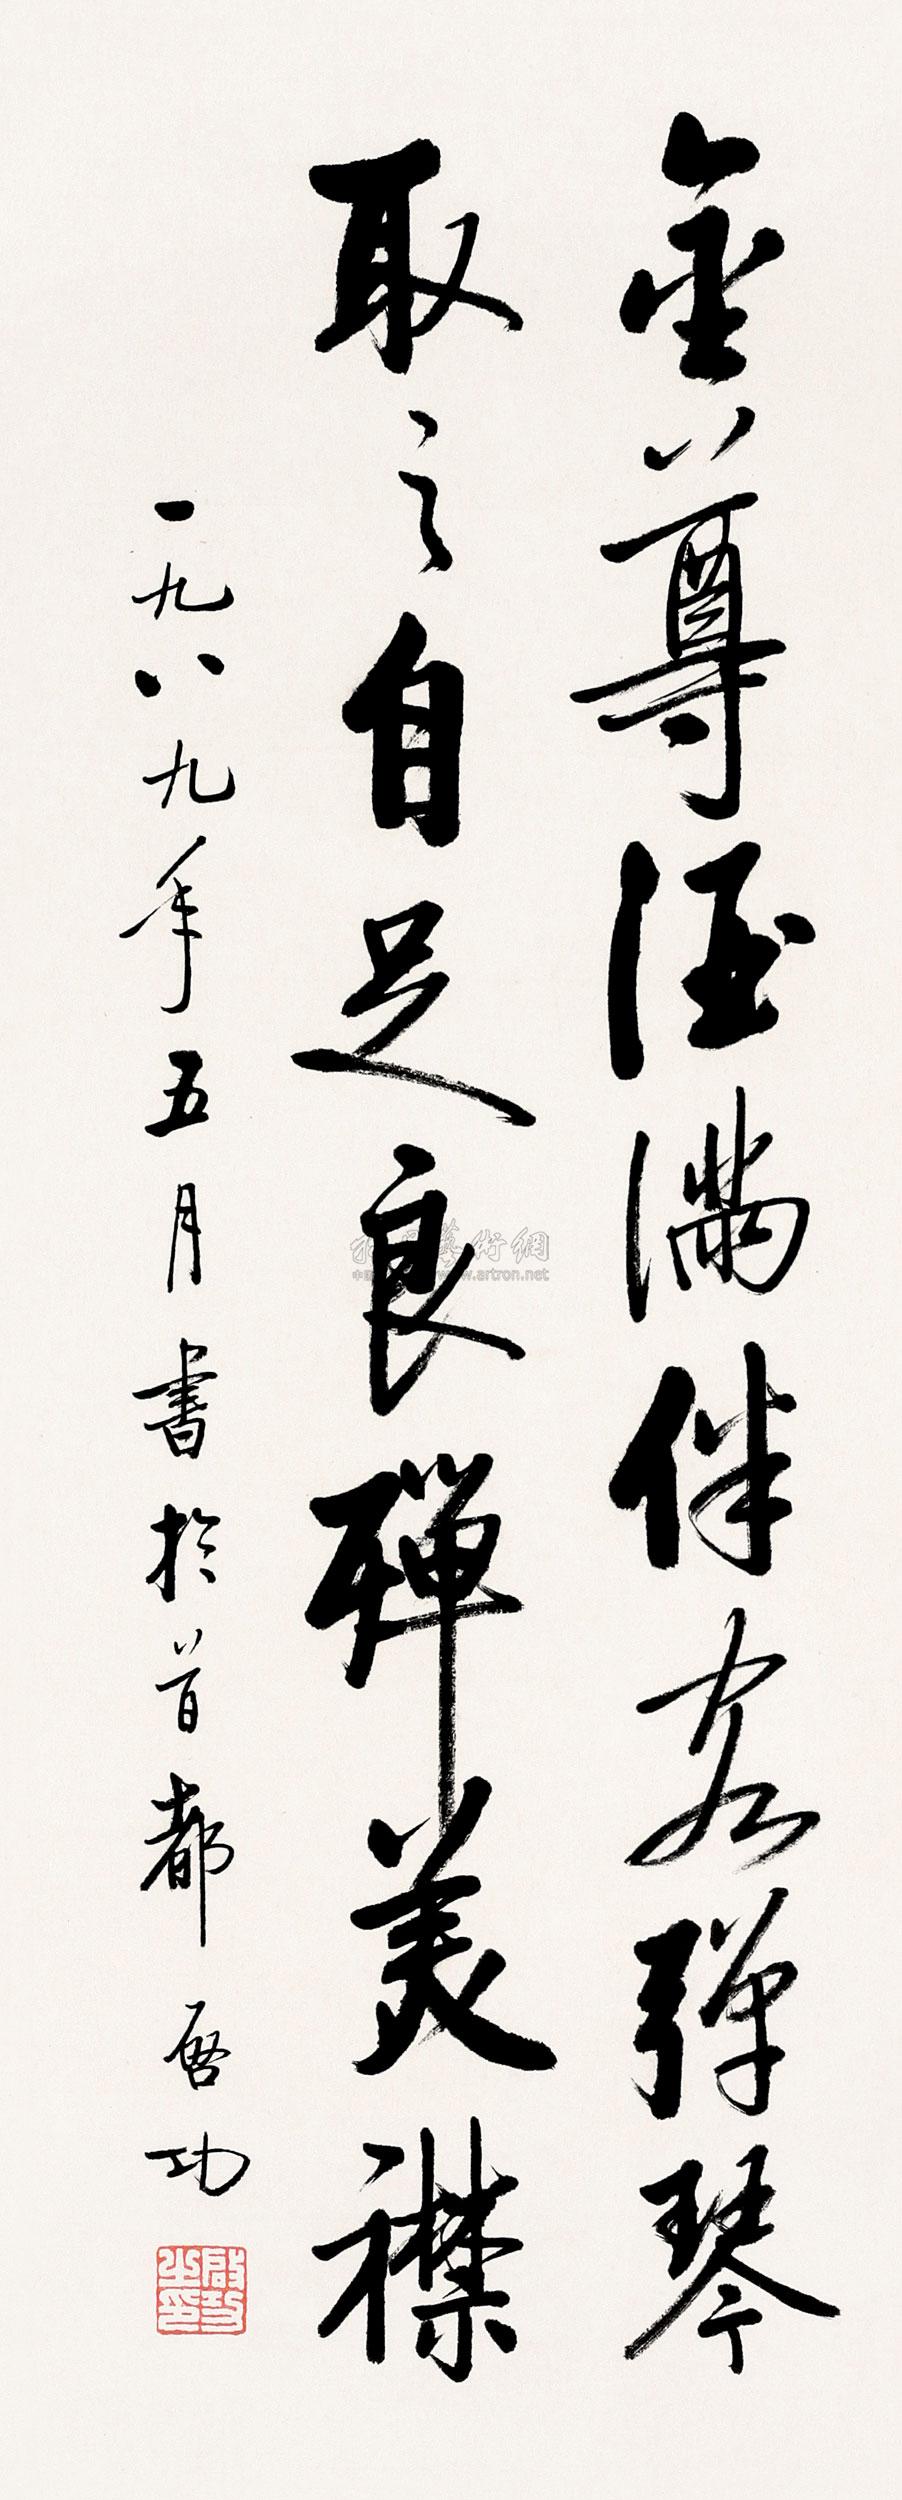 金尊酒滿伴客弹琴
取之自足良殚美襟
一九八九年五月書於首都 启功
啟功之印
藝術網
www.artron.net